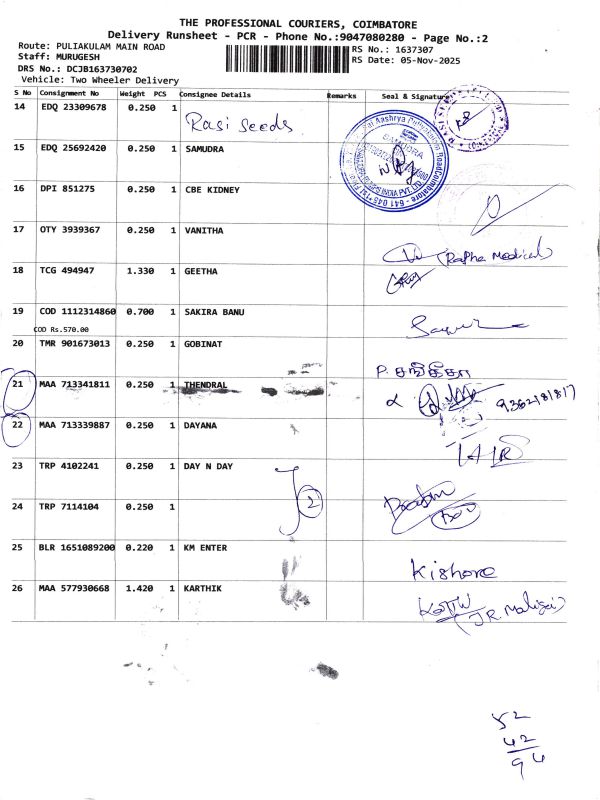 THE PROFESSIONAL COURIERS, COIMBATORE
Delivery Runsheet - PCR - Phone No.:9047080280 - Page No.:2
Route: PULIAKULAM MAIN ROAD
RS No.: 1637307
Staff: MURUGESH
RS Date: 05-Nov-2025
DRS No.: DCJB163730702
Vehicle: Two Wheeler Delivery
S No Consignment No Weight PCS Consignee Details Remarks Seal & Signature
14 EDQ 23309678 0.250 1 Rasi seeds
15 EDQ 25692420 0.250 1 SAMUDRA
16 DPI 851275 0.250 1 CBE KIDNEY
17 OTY 3939367 0.250 1 VANITHA (Rapha Medical)
18 TCG 494947 1.330 1 GEETHA
19 COD 1112314860 0.700 1 SAKIRA BANU
COD Rs.570.00
20 TMR 901673013 0.250 1 GOBINAT P. சங்கீதா
21 MAA 713341811 0.250 1 THENDRAL 9362181817
22 MAA 713339887 0.250 1 DAYANA
23 TRP 4102241 0.250 1 DAY N DAY
24 TRP 7114104 0.250 1 2
25 BLR 1651089200 0.220 1 KM ENTER Kishore
26 MAA 577930668 1.420 1 KARTHIK
52
42
94